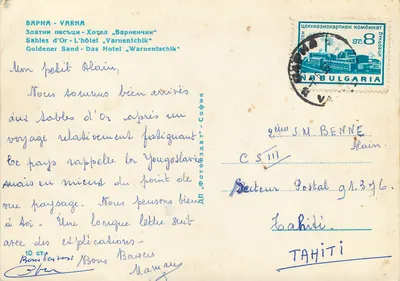 ВАРНА - VARNA
Златни пясъци - Хотел „Варненчик"
Sables d'Or - L'hôtel „Varnentchik"
Goldener Sand - Das Hotel „Warnentschik"
Mon petit Alain,
Nous sommes bien arrivés
aux sables d'or après un
voyage relativement fatiguant.
Ce pays rappelle la Yougoslavie
mais en mieux du point de
vue paysage. Nous pensons bien
à toi. Une longue lettre suit
avec des explications.
10 ст.
Bons Baisers
Maman
ДП „Фотоиздат" - София
ст. 8
BULGARIA
ВАРНА
VA
S.M. BENNE
Alain
C S III
Secteur Postal 91.376
Tahiti
TAHITI